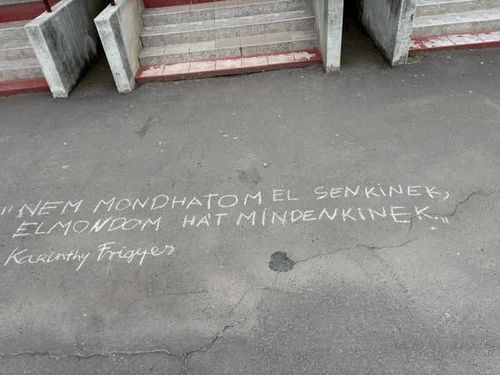 „NEM MONDHATOM EL SENKINEK,
ELMONDOM HÁT MINDENKINEK.„
Karinthy Frigyes